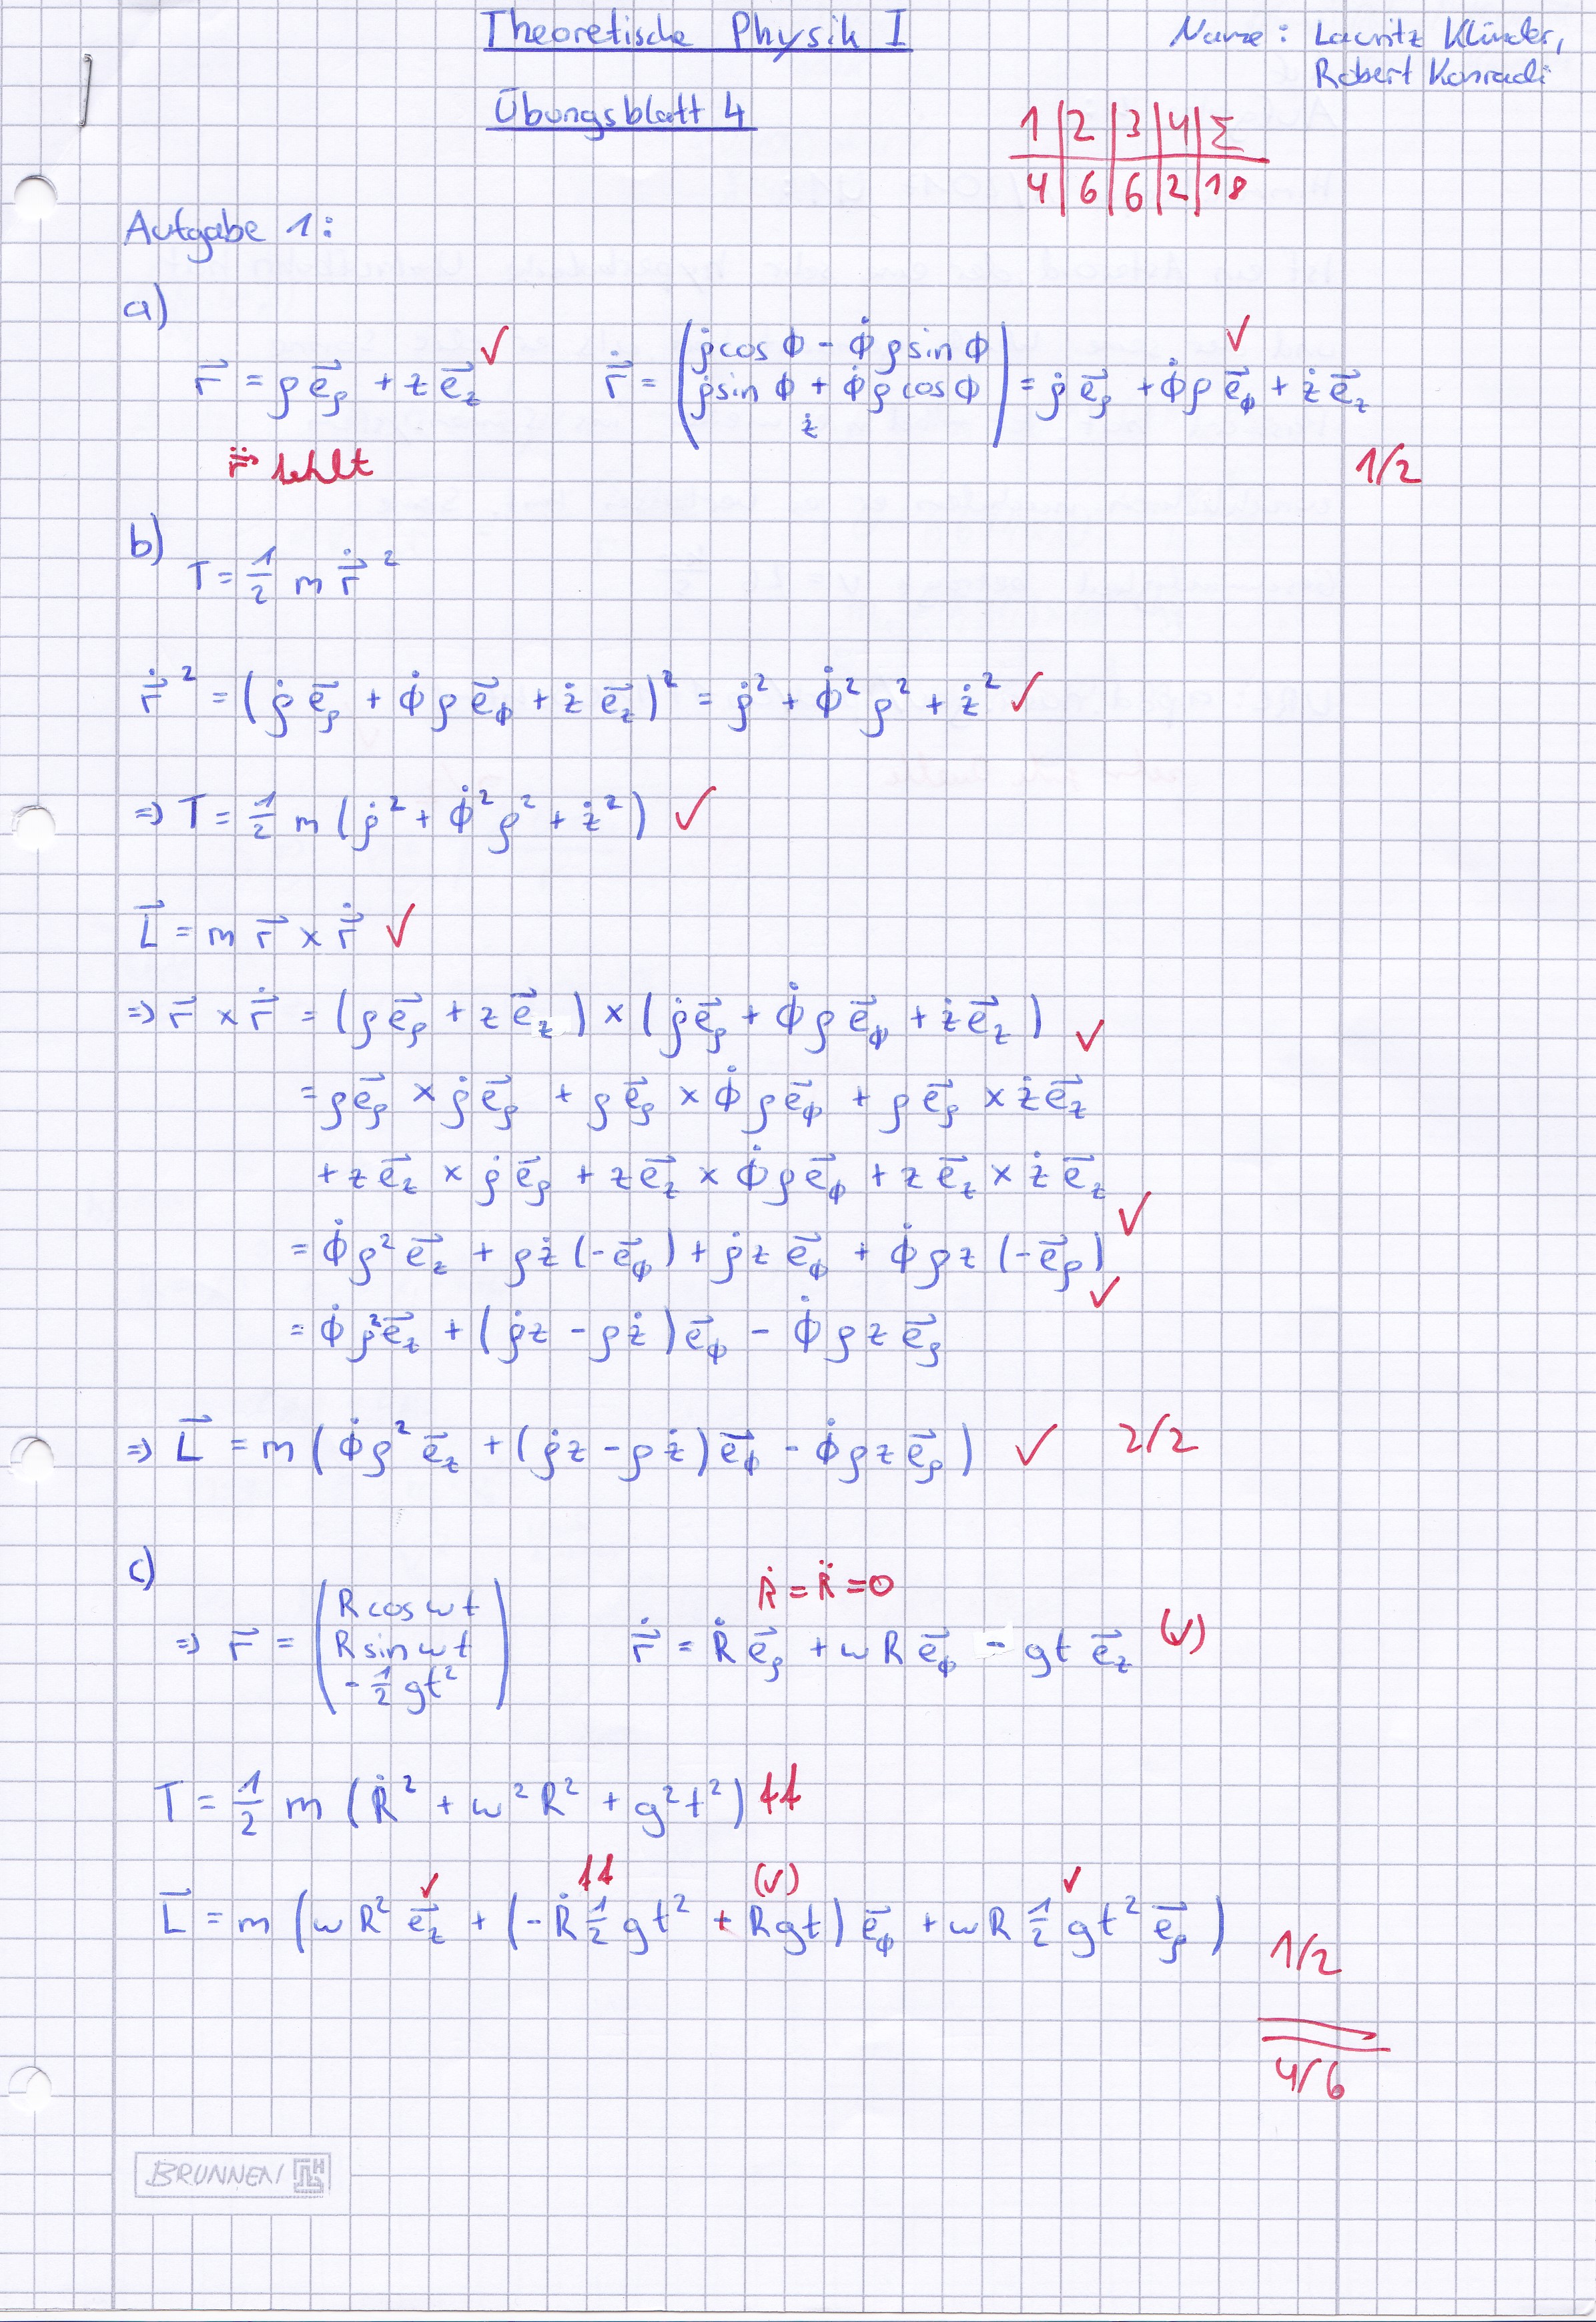 Theoretische Physik I
Name: Lauritz Klünder,
Robert Konradi
Übungsblatt 4
1 | 2 | 3 | 4 | Σ
4 | 6 | 6 | 2 | 18
Aufgabe 1:
a)
r⃗ = ρ e⃗_ρ + z e⃗_z ✓ r⃗̇ = (ρ̇ cos ϕ - ϕ̇ ρ sin ϕ; ρ̇ sin ϕ + ϕ̇ ρ cos ϕ; ż) = ρ̇ e⃗_ρ + ϕ̇ ρ e⃗_ϕ + ż e⃗_z ✓
r⃗̈ fehlt 1/2
b)
T = 1/2 m r⃗̇ ²
r⃗̇ ² = (ρ̇ e⃗_ρ + ϕ̇ ρ e⃗_ϕ + ż e⃗_z)² = ρ̇² + ϕ̇² ρ² + ż² ✓
⇒ T = 1/2 m (ρ̇² + ϕ̇² ρ² + ż²) ✓
L⃗ = m r⃗ × r⃗̇ ✓
⇒ r⃗ × r⃗̇ = (ρ e⃗_ρ + z e⃗_z) × (ρ̇ e⃗_ρ + ϕ̇ ρ e⃗_ϕ + ż e⃗_z) ✓
= ρ e⃗_ρ × ρ̇ e⃗_ρ + ρ e⃗_ρ × ϕ̇ ρ e⃗_ϕ + ρ e⃗_ρ × ż e⃗_z
+ z e⃗_z × ρ̇ e⃗_ρ + z e⃗_z × ϕ̇ ρ e⃗_ϕ + z e⃗_z × ż e⃗_z
= ϕ̇ ρ² e⃗_z + ρ ż (-e⃗_ϕ) + ρ̇ z e⃗_ϕ + ϕ̇ ρ z (-e⃗_ρ) ✓
= ϕ̇ ρ² e⃗_z + (ρ̇ z - ρ ż) e⃗_ϕ - ϕ̇ ρ z e⃗_ρ ✓
⇒ L⃗ = m (ϕ̇ ρ² e⃗_z + (ρ̇ z - ρ ż) e⃗_ϕ - ϕ̇ ρ z e⃗_ρ) ✓ 2/2
c)
Ṙ = R̈ = 0
⇒ r⃗ = (R cos ωt; R sin ωt; -1/2 gt²) r⃗̇ = Ṙ e⃗_ρ + ω R e⃗_ϕ - gt e⃗_z (✓)
T = 1/2 m (Ṙ² + ω² R² + g² t²)
L⃗ = m (ω R² e⃗_z ✓ + (-Ṙ 1/2 gt² + Rgt (✓)) e⃗_ϕ + ω R 1/2 gt² e⃗_ρ ✓)
1/2
4/6
BRUNNEN